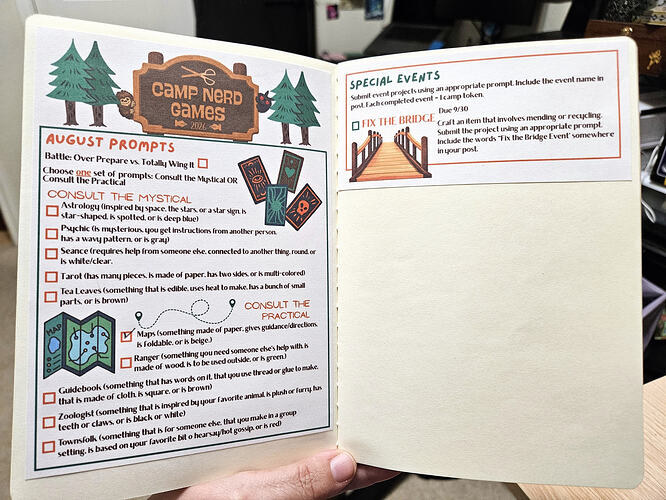 CAMP NERD
GAMES
2026
AUGUST PROMPTS
Battle: Over Prepare vs. Totally Wing It
Choose one set of prompts: Consult the Mystical OR
Consult the Practical
CONSULT THE MYSTICAL
Astrology (inspired by space, the stars, or a star sign, is
star-shaped, is spotted, or is deep blue)
Psychic (is mysterious, you get instructions from another person,
has a wavy pattern, or is gray)
Seance (requires help from someone else, connected to another thing, round, or
is white/clear.
Tarot (has many pieces, is made of paper, has two sides, or is multi-colored)
Tea Leaves (something that is edible, uses heat to make, has a bunch of small
parts, or is brown)
CONSULT THE
PRACTICAL
MAP
Maps (something made of paper, gives guidance/directions,
is foldable, or is beige.)
Ranger (something you need someone else's help with, is
made of wood, is to be used outside, or is green.)
Guidebook (something that has words on it, that you use thread or glue to make,
that is made of cloth, is square, or is brown)
Zoologist (something that is inspired by your favorite animal, is plush or furry, has
teeth or claws, or is black or white)
Townsfolk (something that is for someone else, that you make in a group
setting, is based on your favorite bit o hearsay/hot gossip, or is red)
SPECIAL EVENTS
Submit event projects using an appropriate prompt. Include the event name in
post. Each completed event = 1 camp token.
Due 9/30
FIX THE BRIDGE
Craft an item that involves mending or recycling.
Submit the project using an appropriate prompt.
Include the words "Fix the Bridge Event' somewhere
in your post.